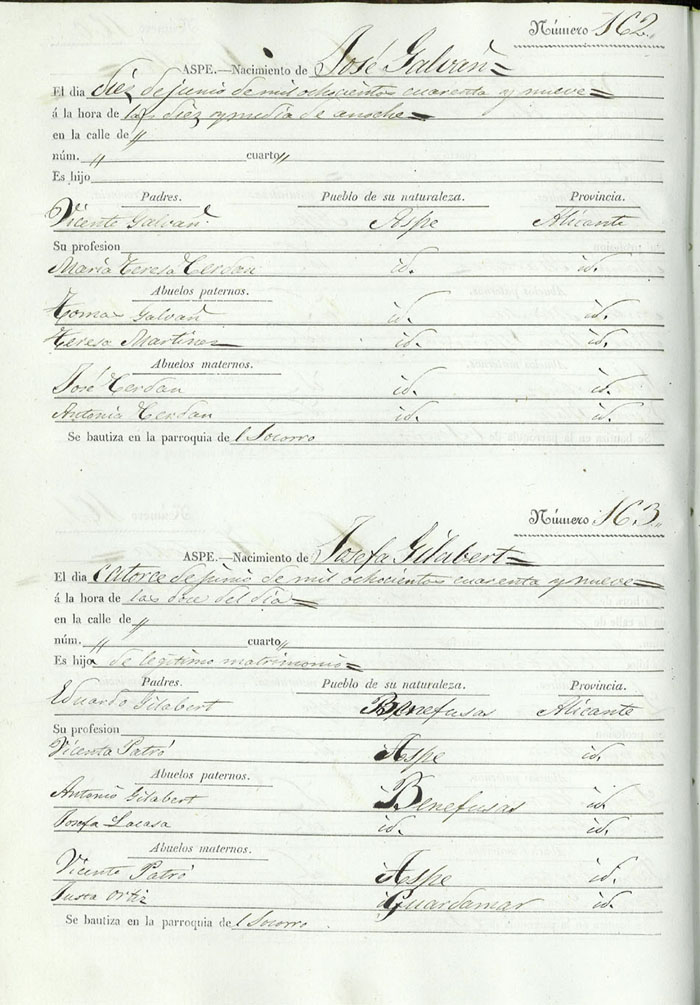 Número 162.
ASPE.—Nacimiento de José Galvañ=
El dia diez de junio de mil ochocientos cuarenta y nueve=
á la hora de las diez y media de anoche=
en la calle de "
núm. " cuarto "
Es hijo
Padres. Pueblo de su naturaleza. Provincia.
Vicente Galvañ Aspe Alicante
Su profesion
Maria Teresa Cerdan id. id.
Abuelos paternos.
Tomas Galvañ id. id.
Teresa Martinez id. id.
Abuelos maternos.
José Cerdan id. id.
Antonia Cerdan id. id.
Se bautiza en la parroquia de l Socorro
Número 163.
ASPE.—Nacimiento de Josefa Gilabert=
El dia catorce de junio de mil ochocientos cuarenta y nueve=
á la hora de las doce del dia=
en la calle de "
núm. " cuarto "
Es hija de legitimo matrimonio=
Padres. Pueblo de su naturaleza. Provincia.
Eduardo Gilabert Benefusas Alicante
Su profesion
Vicenta Patró Aspe id.
Abuelos paternos.
Antonio Gilabert Benefusas id.
Josefa Lacasa id. id.
Abuelos maternos.
Vicente Patró Aspe id.
Justa Ortiz Guardamar id.
Se bautiza en la parroquia de l Socorro